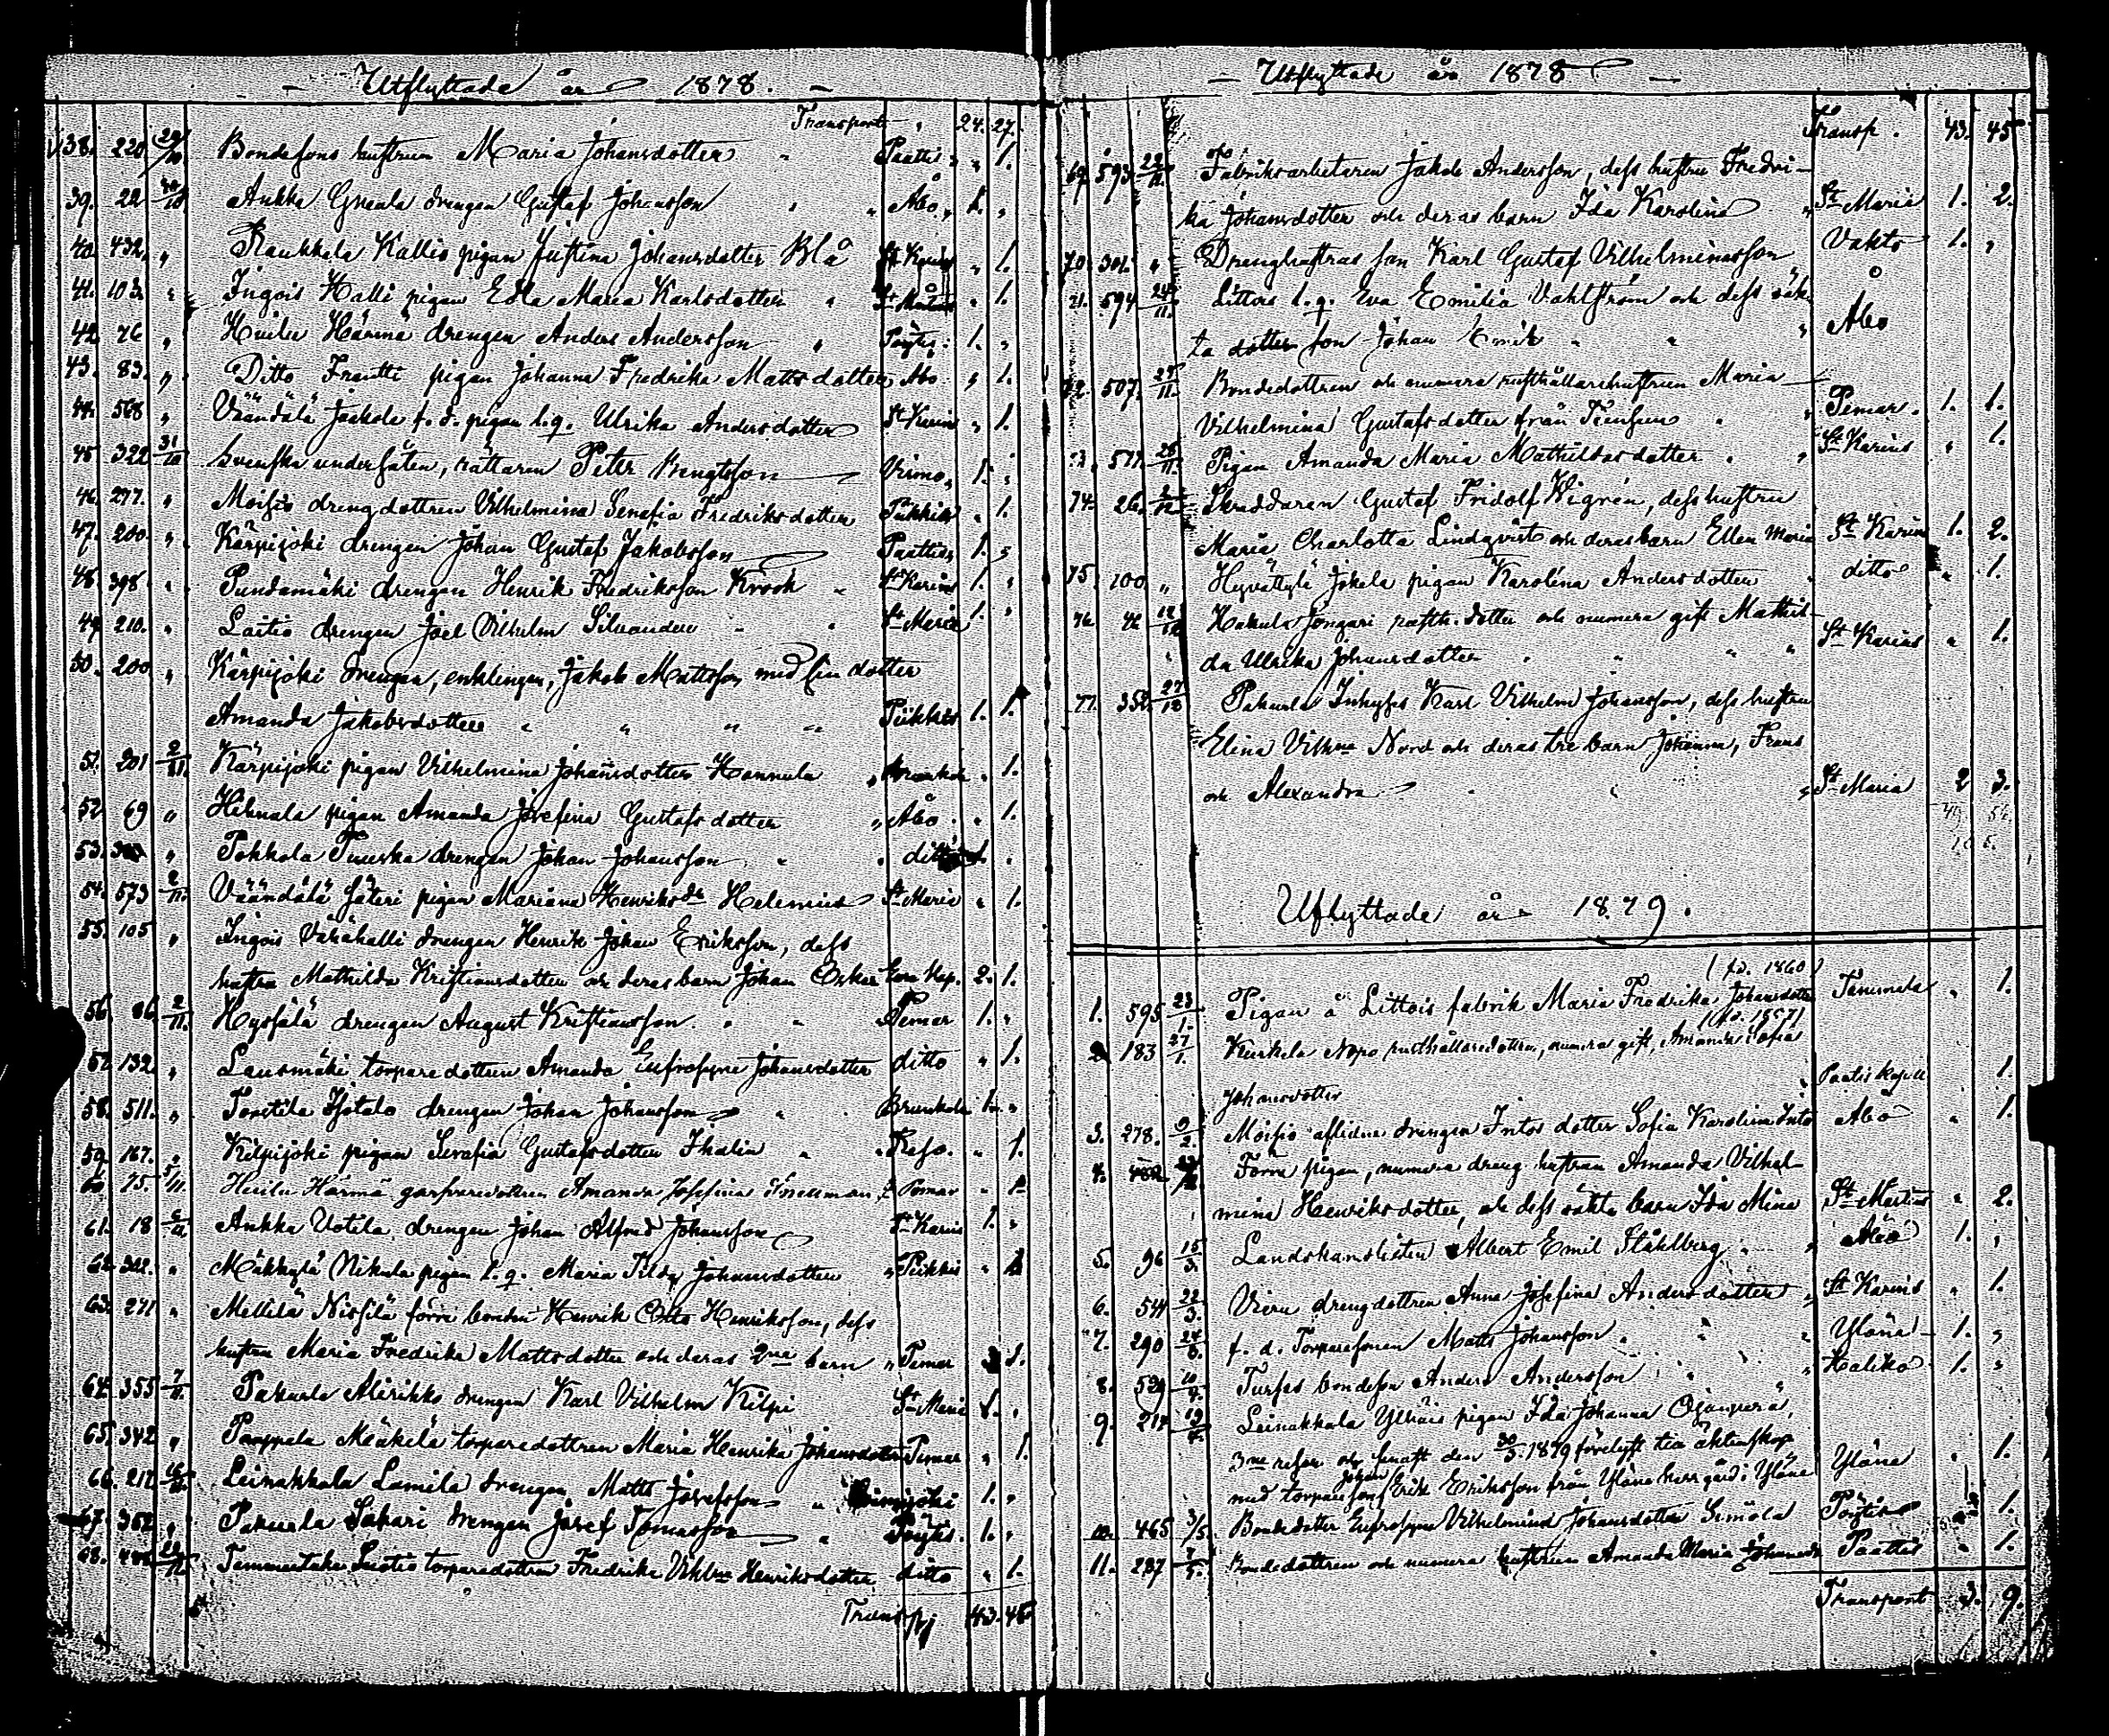 Utflyttade år 1878.
Transport 24. 27.
38. 220 29/10 Bondesons hustrun Maria Johansdotter Paattis " 1.
39. 22 30/10 Aukka Gunnla drengen Gustaf Johansson " Åbo 1. "
40. 432. " Raukkala Kallis pigan Justina Johansdotter Blå St Karins " 1.
41. 103. " Ingois Halli pigan Edla Maria Karlsdotter " St Mårtens " 1.
42. 76 " Huilu Härmä drengen Anders Andersson " Pöytis 1. "
43. 83. " Ditto Frantti pigan Johanna Fredrika Mattsdotter Åbo " 1.
44. 568 " Väändälä Jaakola f. d. pigan l. q. Ulrika Andersdotter St Karins " 1.
45 322 31/10 Svenska undersåten, rättaren Peter Bengtsson Virmo 1. "
46. 277. " Moisio drengdottren Vilhelmina Serafia Fredriksdotter Piikkis " 1.
47. 200. " Kärpijoki drengen Johan Gustaf Jakobsson Paattis 1. "
48. 398. " Pundamäki drengen Henrik Fredriksson Krook " St Karins 1. "
49. 210. " Laitio drengen Joel Vilhelm Silvander " St Maria 1. "
50. 200 " Kärpijoki drengen, enklingen, Jakob Mattsson med sin dotter
Amanda Jakobsdotter " " " " Piikkis 1. 1.
51. 201 2/11. Kärpijoki pigan Vilhelmina Johansdotter Hannula " " 1.
52 69 " Hihnala pigan Amanda Josefina Gustafsdotter " Åbo " 1.
53. " Pokkola Tuuska drengen Johan Johansson " " ditto 1. "
54. 573 2/11. Väändälä Säteri pigan Mariana Henriksdr Helenius St Maria " 1.
55. 105 " Ingois Vähähalli drengen Henrik Johan Eriksson, dess
hustru Mathilda Kristiansdotter och deras barn Johan Oskar Kap. 2. 1.
56. 86 2/11. Hyssälä drengen August Kristiansson " " Pemar 1. "
57. 132 " Lausmäki torparedottren Amanda Eufrosyne Johansdotter ditto " 1.
58. 511. " Tortila Isotalo drengen Johan Johansson " Brunkala 1. "
59. 167. " Kilpijoki pigan Serafia Gustafsdotter Thalin " Reso. " 1.
60 75. 5/11. Huilu Härmä garfvaredottren Amanda Josefina Pemar " 1.
61. 18 Aukka Uotila drengen Johan Alfred Johansson St Karins 1. "
62. 302. " Mäkkylä Nikula pigan l. q. Maria Tilda Johansdotter " Piikkis " 1.
63. 271 " Mellilä Nissilä förre bonden Henrik Otto Henriksson, dess
hustru Maria Fredrika Mattsdotter och deras 2ne barn " Pemar 1.
64. 355 7/11. Pakurla Alirikko drengen Karl Vilhelm Kilpi St Maria 1. "
65. 342 " Paappala Mäkelä torparedottren Maria Henrika Johansdotter Pemar " 1.
66. 212 Leinakkala Lamila drengen Matts Josefsson " 1. "
67. 352 " Pakurla Sakari drengen Josef Tomasson " Pöytis. 1. "
68. Tammentaka Suotio torparedottren Fredrika Vilhna Henriksdotter ditto " 1.
Transp. 43. 45.
Utflyttade år 1878
Transp. 43. 45
69. 593 22/11. Fabriksarbetaren Jakob Andersson, dess hustru Fredri-
ka Johansdotter och deras barn Ida Karolina " St Maria 1. 2.
70. 301. " Drenghustrus son Karl Gustaf Vilhelminasson Vahto 1. "
71. 594 24/11. Littois l. q. Eva Emilia Vahlström och dess oäk-
ta dotter son Johan Emil " " " Åbo
72. 507. 27/11. Bondedottren och numera rusthållarehustrun Maria
Vilhelmina Gustafsdotter från " Pemar. 1. 1.
73. 28/11. Pigan Amanda Maria Mathildasdotter " St Karins " 1.
74. 26. Skräddaren Gustaf Fridolf Wigrén, dess hustru
Maria Charlotta Lindqvist och deras barn Ellen Maria St Karins 1. 2.
75. 100 " Hyvättylä Jokela pigan Karolina Andersdotter " ditto " 1.
76 12/12 Hakula Jongari rusth. dotter och numera gift Mathil-
da Ulrika Johansdotter " " " " St Karins " 1.
77. 352. 27/12 Pakurla Inhyses Karl Vilhelm Johansson, dess hustru
Elina Vilhna Nord och deras tre barn Johanna, Frans
och Alexandra " " " St Maria 2 3.
Utflyttade år 1879.
(fd. 1860)
1. 595 23/1. Pigan å Littois fabrik Maria Fredrika Johansdotter Tammela " 1.
(fd. 1857)
2 183 27/1. Kurkela Nopo rusthållaredottren, numera gift, Amanda Sofia
Johansdotter " Paatis Kapell 1.
3. 278. 9/2. Moisio aflidne drengen Intos dotter Sofia Karolina Into Åbo " 1.
4. Förra pigan, numera dreng hustrun Amanda Vilhel-
mina Henriksdotter, och dess oäkta barn Ida Mina St Mårtens " 2.
5. 96 15/3. Landskanslisten Albert Emil Ståhlberg " " Åbo 1. "
6. 544 22/3. Vieru drengdottren Anna Josefina Andersdotter " St Karins " 1.
7. 290 f. d. Torparesonen Matts Johansson " " " Yläne 1. "
8. 529 Bondeson Anders Andersson " " Haliko 1. "
9. 214 Leinakkala Ylhäis pigan Ida Johanna Ojanperä,
3ne resor och senast den 30/3. 1879 förelyst till äktenskap
med torpareson Johan Erik Eriksson från Yläne herrgård i Yläne Yläne " 1.
10. 465 3/5. Bondedotter Eufrosyne Vilhelmina Johansdotter Simola Pöytis " 1.
11. 237 Bondedottren och numera hustrun Amanda Maria Johansdr Paattis " 1.
Transport 3. 9.